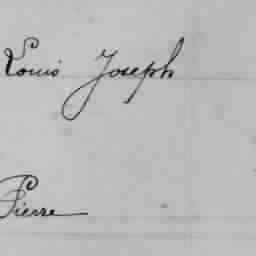 Louis Joseph
Pierre